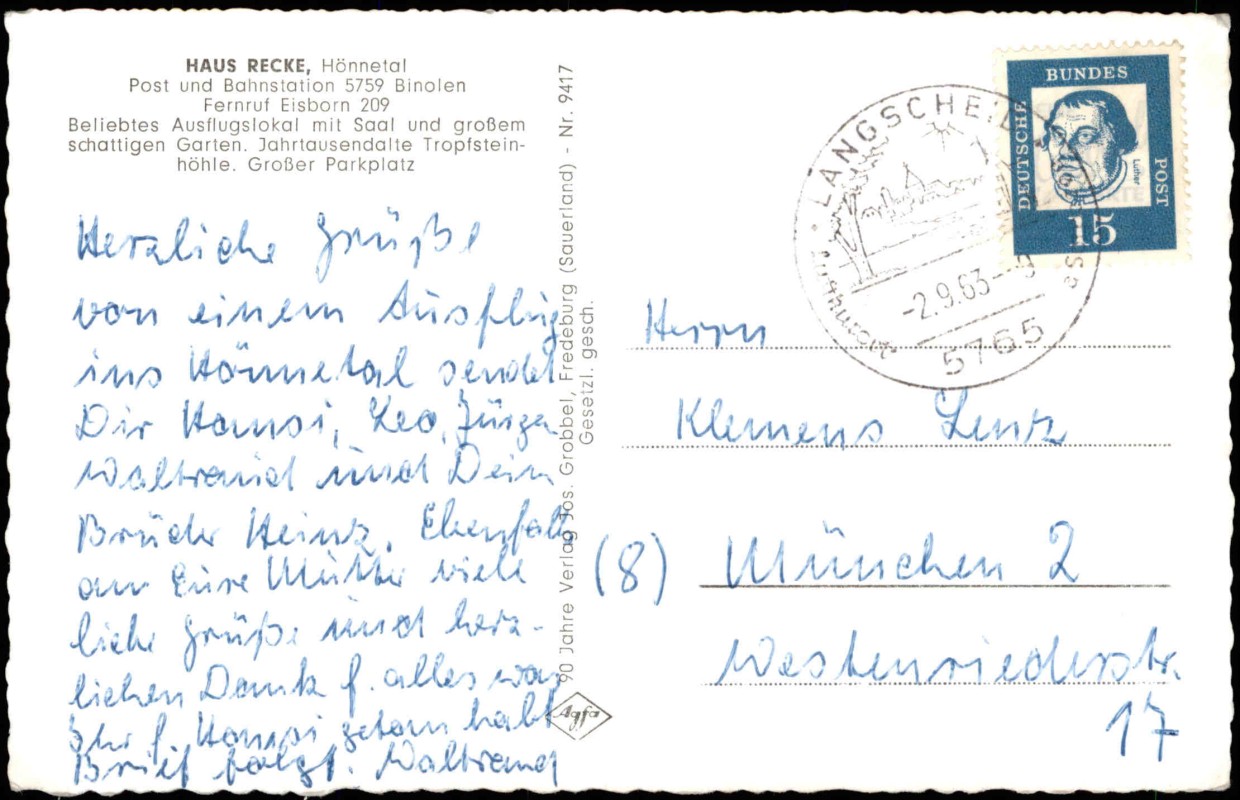 HAUS RECKE, Hönnetal
Post und Bahnstation 5759 Binolen
Fernruf Eisborn 209
Beliebtes Ausflugslokal mit Saal und großem
schattigen Garten. Jahrtausendalte Tropfstein-
höhle. Großer Parkplatz
Herzliche Grüße
von einem Ausflug
ins Hönnetal sendet
Dir Hansi, Leo, Jürgen
Waltraud und Dein
Bruder Heinz. Ebenfalls
an Eure Mutter viele
liebe Grüße und herz-
lichen Dank f. alles was
Ihr f. Hansi getan habt
Brief folgt. Waltraud
90 Jahre Verlag Jos. Grobbel, Fredeburg (Sauerland) - Nr. 9417
Gesetzl. gesch.
Agfa
LANGSCHEID
-2.9.63
5765
DEUTSCHE
BUNDES
POST
Luther
15
Herrn
Klemens Lenz
(8) München 2
Westenriederstr.
17